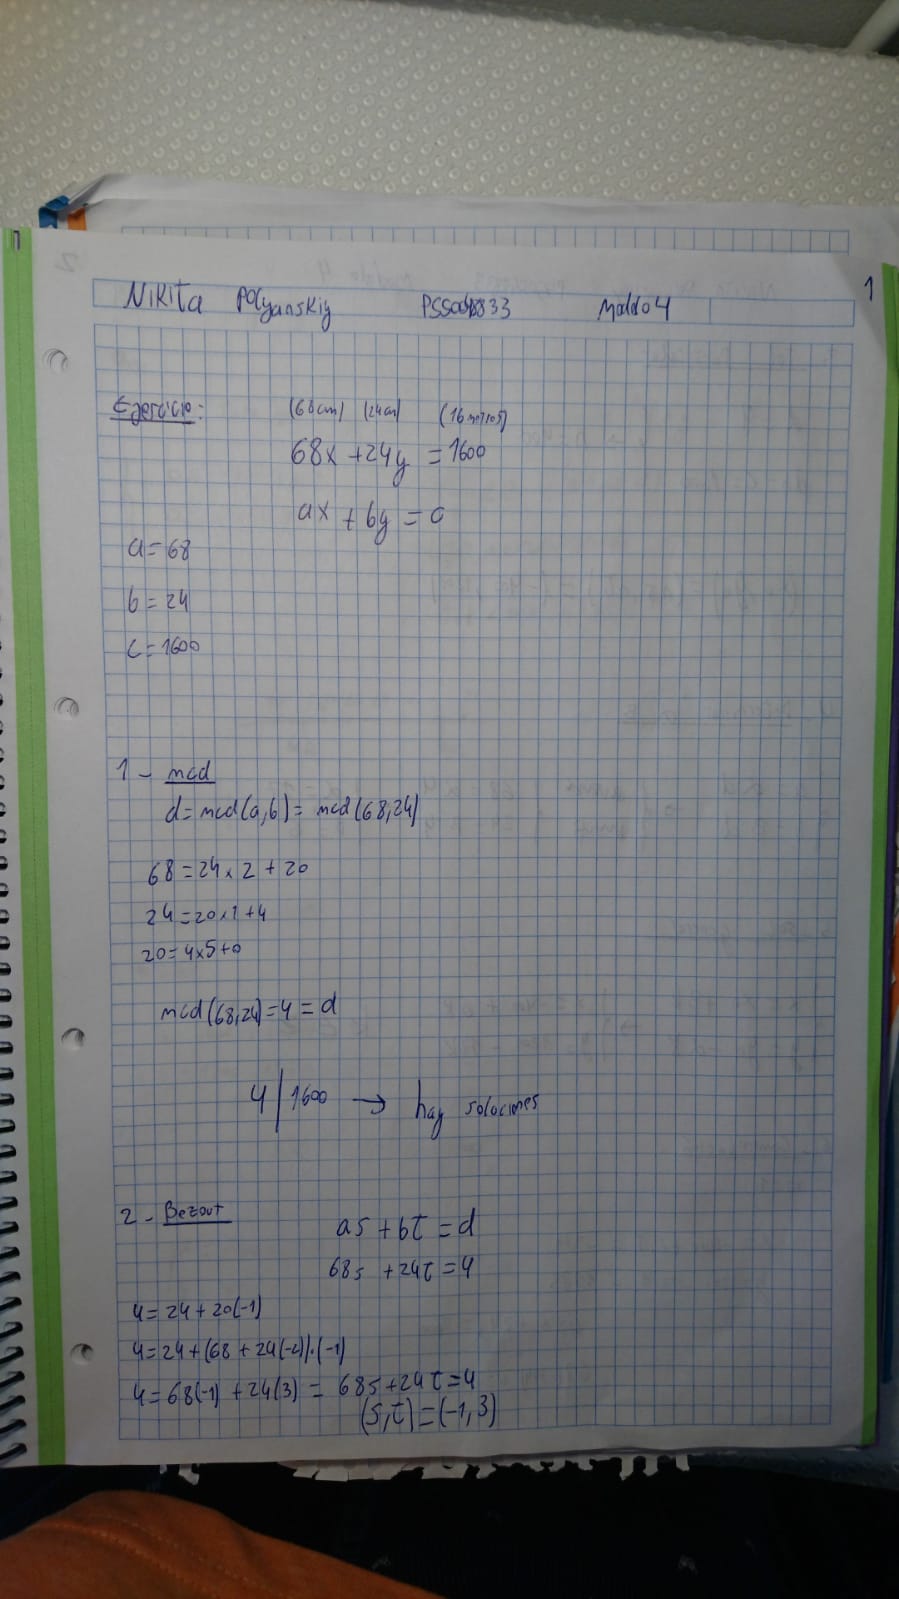 Nikita Polyanskiy Modelo 4 1
Ejercicio: (68cm) (24cm) (16 metros)
68x + 24y = 1600
ax + by = c
a = 68
b = 24
c = 1600
1 - mcd
d = mcd(a,b) = mcd(68,24)
68 = 24 x 2 + 20
24 = 20 x 1 + 4
20 = 4 x 5 + 0
mcd(68,24) = 4 = d
4 | 1600 → hay soluciones
2 - Bezout as + bt = d
68s + 24t = 4
4 = 24 + 20(-1)
4 = 24 + (68 + 24(-2))·(-1)
4 = 68(-1) + 24(3) = 68s + 24t = 4
(s,t) = (-1,3)